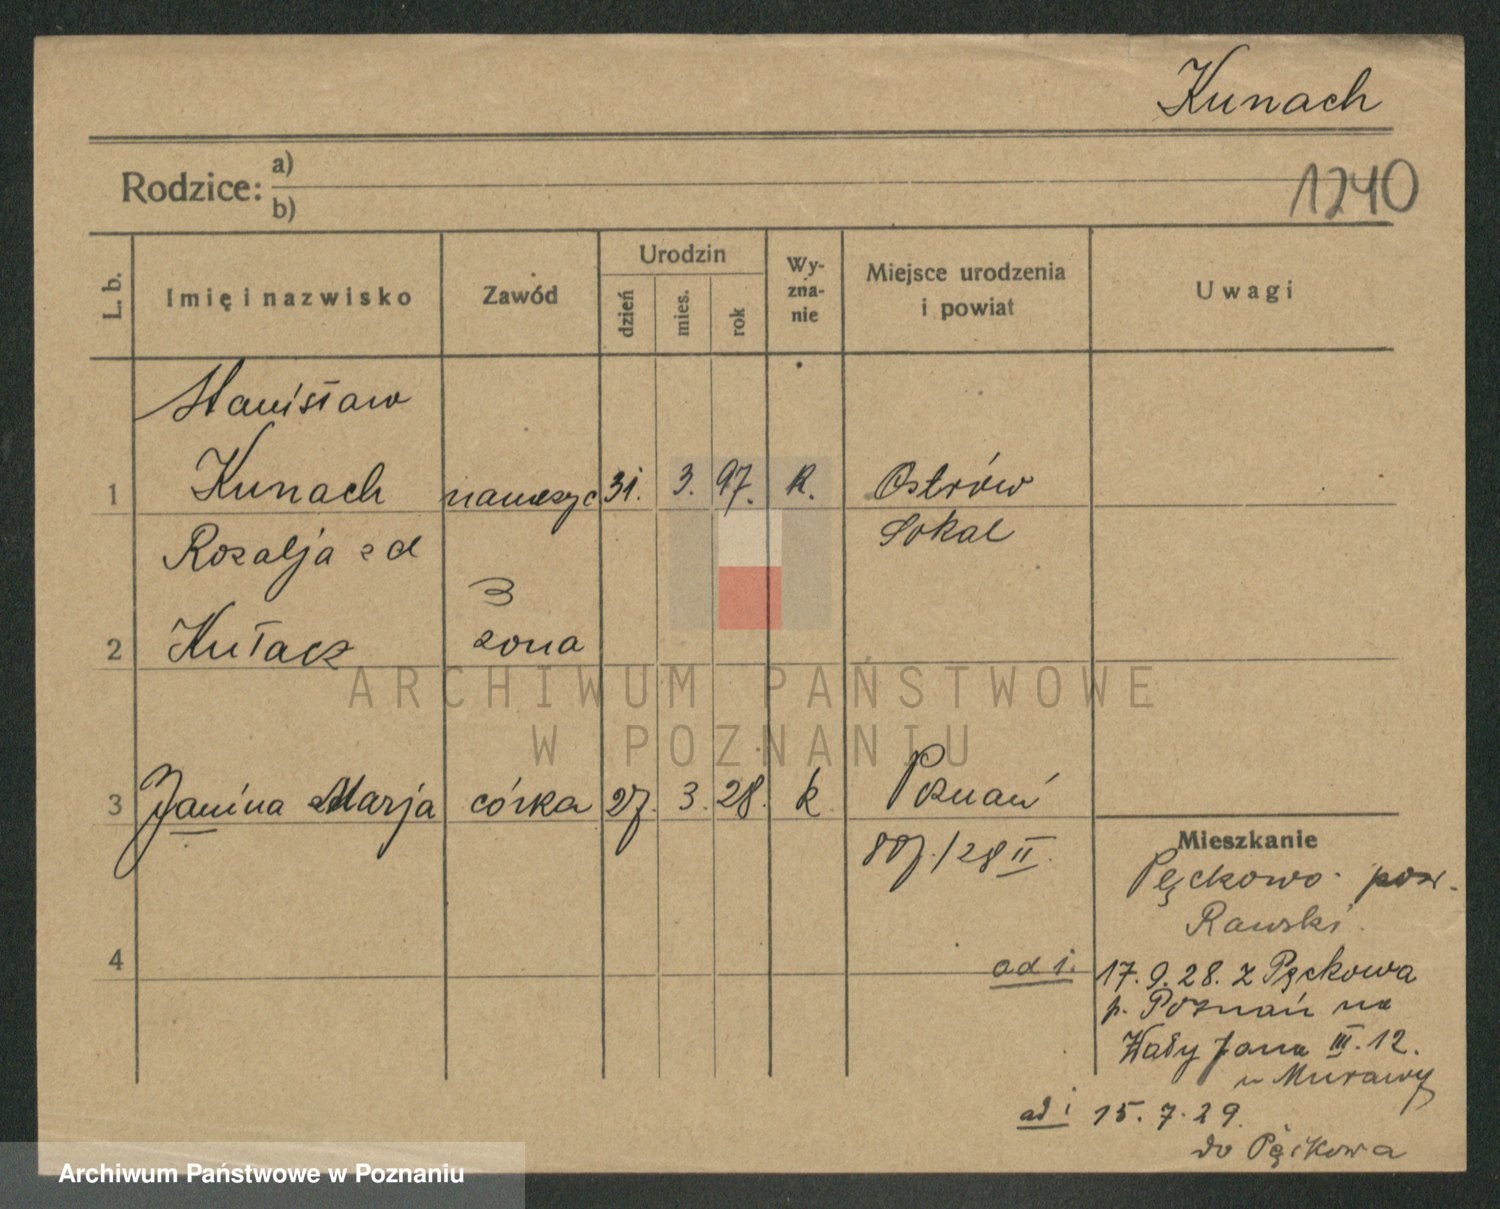 Kunach
Rodzice: a)
b)
1240
L. b. Imię i nazwisko Zawód Urodzin dzień mies. rok Wy-zna-nie Miejsce urodzenia i powiat Uwagi
Stanisław
1 Kunach 31. 3. 97. k. Ostrów
Rozalja z d Sokal
2 Kułacz żona
3 Janina Marja córka 27. 3. 28. k Poznań
807./28 II.
Mieszkanie
Pęckowo pow.
Rawski.
4
ad 1. 17.9.28. z Pęckowa
p. Poznań na
Wały Jana III. 12.
u Murawy
ad 1 15.7.29.
do Pęckowa
ARCHIWUM PAŃSTWOWE
W POZNANIU
Archiwum Państwowe w Poznaniu